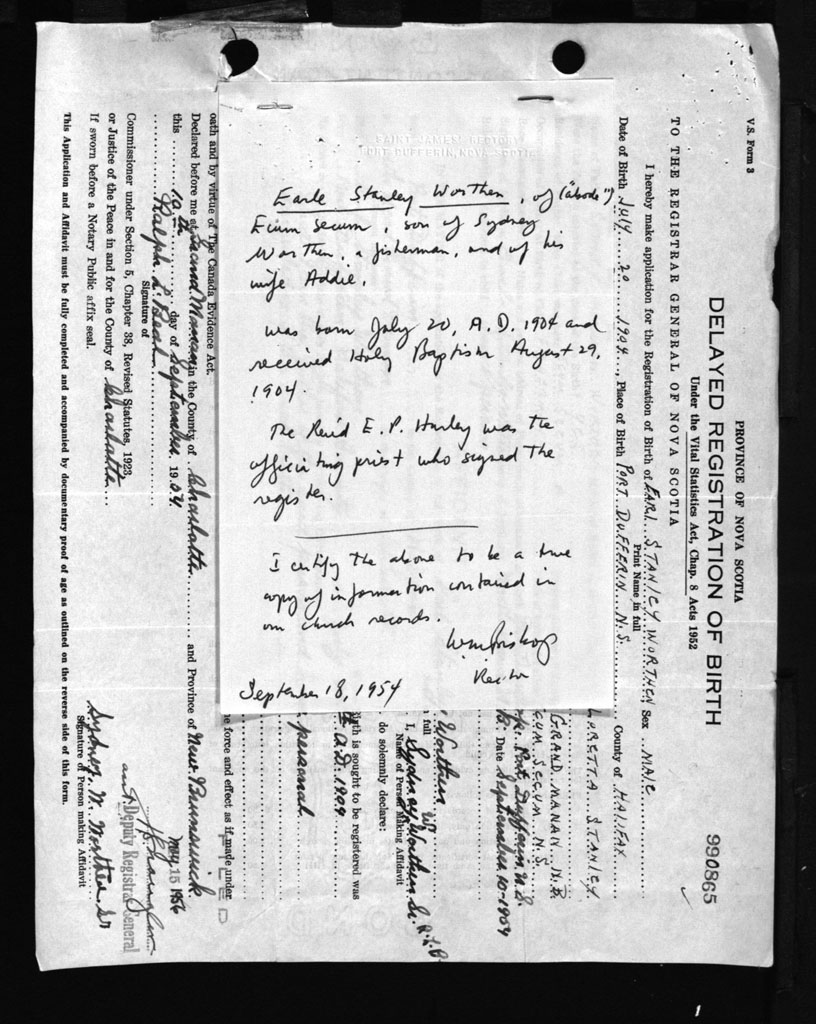 SAINT JAMES' RECTORY
PORT DUFFERIN, NOVA SCOTIA
Earle Stanley Worthen, of ("abode")
Ecum Secum, son of Sydney
Worthen, a fisherman, and of his
wife Addie,
was born July 20, A.D. 1904 and
received Holy Baptism August 29,
1904.
The Rev'd E. P. Hurley was the
officiating priest who signed the
register.
I certify the above to be a true
copy of information contained in
our church records.
Rector
September 18, 1954
V.S. Form 3
PROVINCE OF NOVA SCOTIA
DELAYED REGISTRATION OF BIRTH
990865
Under the Vital Statistics Act, Chap. 8 Acts 1952
TO THE REGISTRAR GENERAL OF NOVA SCOTIA
I hereby make application for the Registration of Birth of EARL STANLEY WORTHEN Sex MALE
Print Name in full
Date of Birth JULY 20 1904, Place of Birth PORT DUFFERIN N.S. County of HALIFAX
LORETTA STANLEY
GRAND MANAN N.B.
CUM SECUM N.S.
Port Dufferin N.S.
Date September 10-1954
Worthen
full
I, Sydney W Worthen Sr. R.L.B.
Name of Person Making Affidavit
do solemnly declare:
birth is sought to be registered was
th A.D. 1904
personal
e force and effect as if made under
oath and by virtue of The Canada Evidence Act.
FILED
Declared before me at Grand Manan in the County of Charlotte and Province of New Brunswick
this 10th day of September 1954
MAY 15 1956
Ralph L. Beal
Signature of
Deputy Registrar General
Commissioner under Section 5, Chapter 38, Revised Statutes, 1923,
or Justice of the Peace in and for the County of Charlotte
If sworn before a Notary Public affix seal.
Sydney W. Worthen Sr
Signature of Person making Affidavit
This Application and Affidavit must be fully completed and accompanied by documentary proof of age as outlined on the reverse side of this form.
1